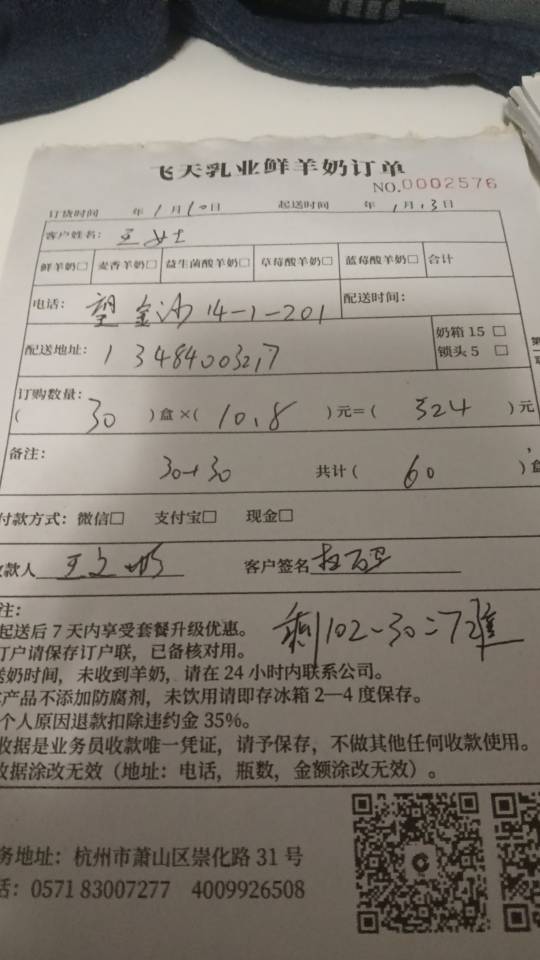 飞天乳业鲜羊奶订单
NO.0002576
订货时间 年1月10日 起送时间 年1月13日
客户姓名: 王女士
鲜羊奶□ 麦香羊奶□ 益生菌酸羊奶□ 草莓酸羊奶□ 蓝莓酸羊奶□ 合计
电话: 望金沙14-1-201 配送时间:
配送地址: 13484003217 奶箱15 □
锁头5 □
订购数量:
( 30 )盒×( 10.8 )元=( 324 )元
备注: 30+30 共计( 60 )
付款方式: 微信□ 支付宝□ 现金□
收款人 客户签名
注:
起送后7天内享受套餐升级优惠。
订户请保存订户联,已备核对用。
剩102-30=72
送奶时间,未收到羊奶,请在24小时内联系公司。
产品不添加防腐剂,未饮用请即存冰箱2—4度保存。
个人原因退款扣除违约金35%。
收据是业务员收款唯一凭证,请予保存,不做其他任何收款使用。
收据涂改无效(地址:电话,瓶数,金额涂改无效)。
务地址:杭州市萧山区崇化路31号
话:0571 83007277 4009926508